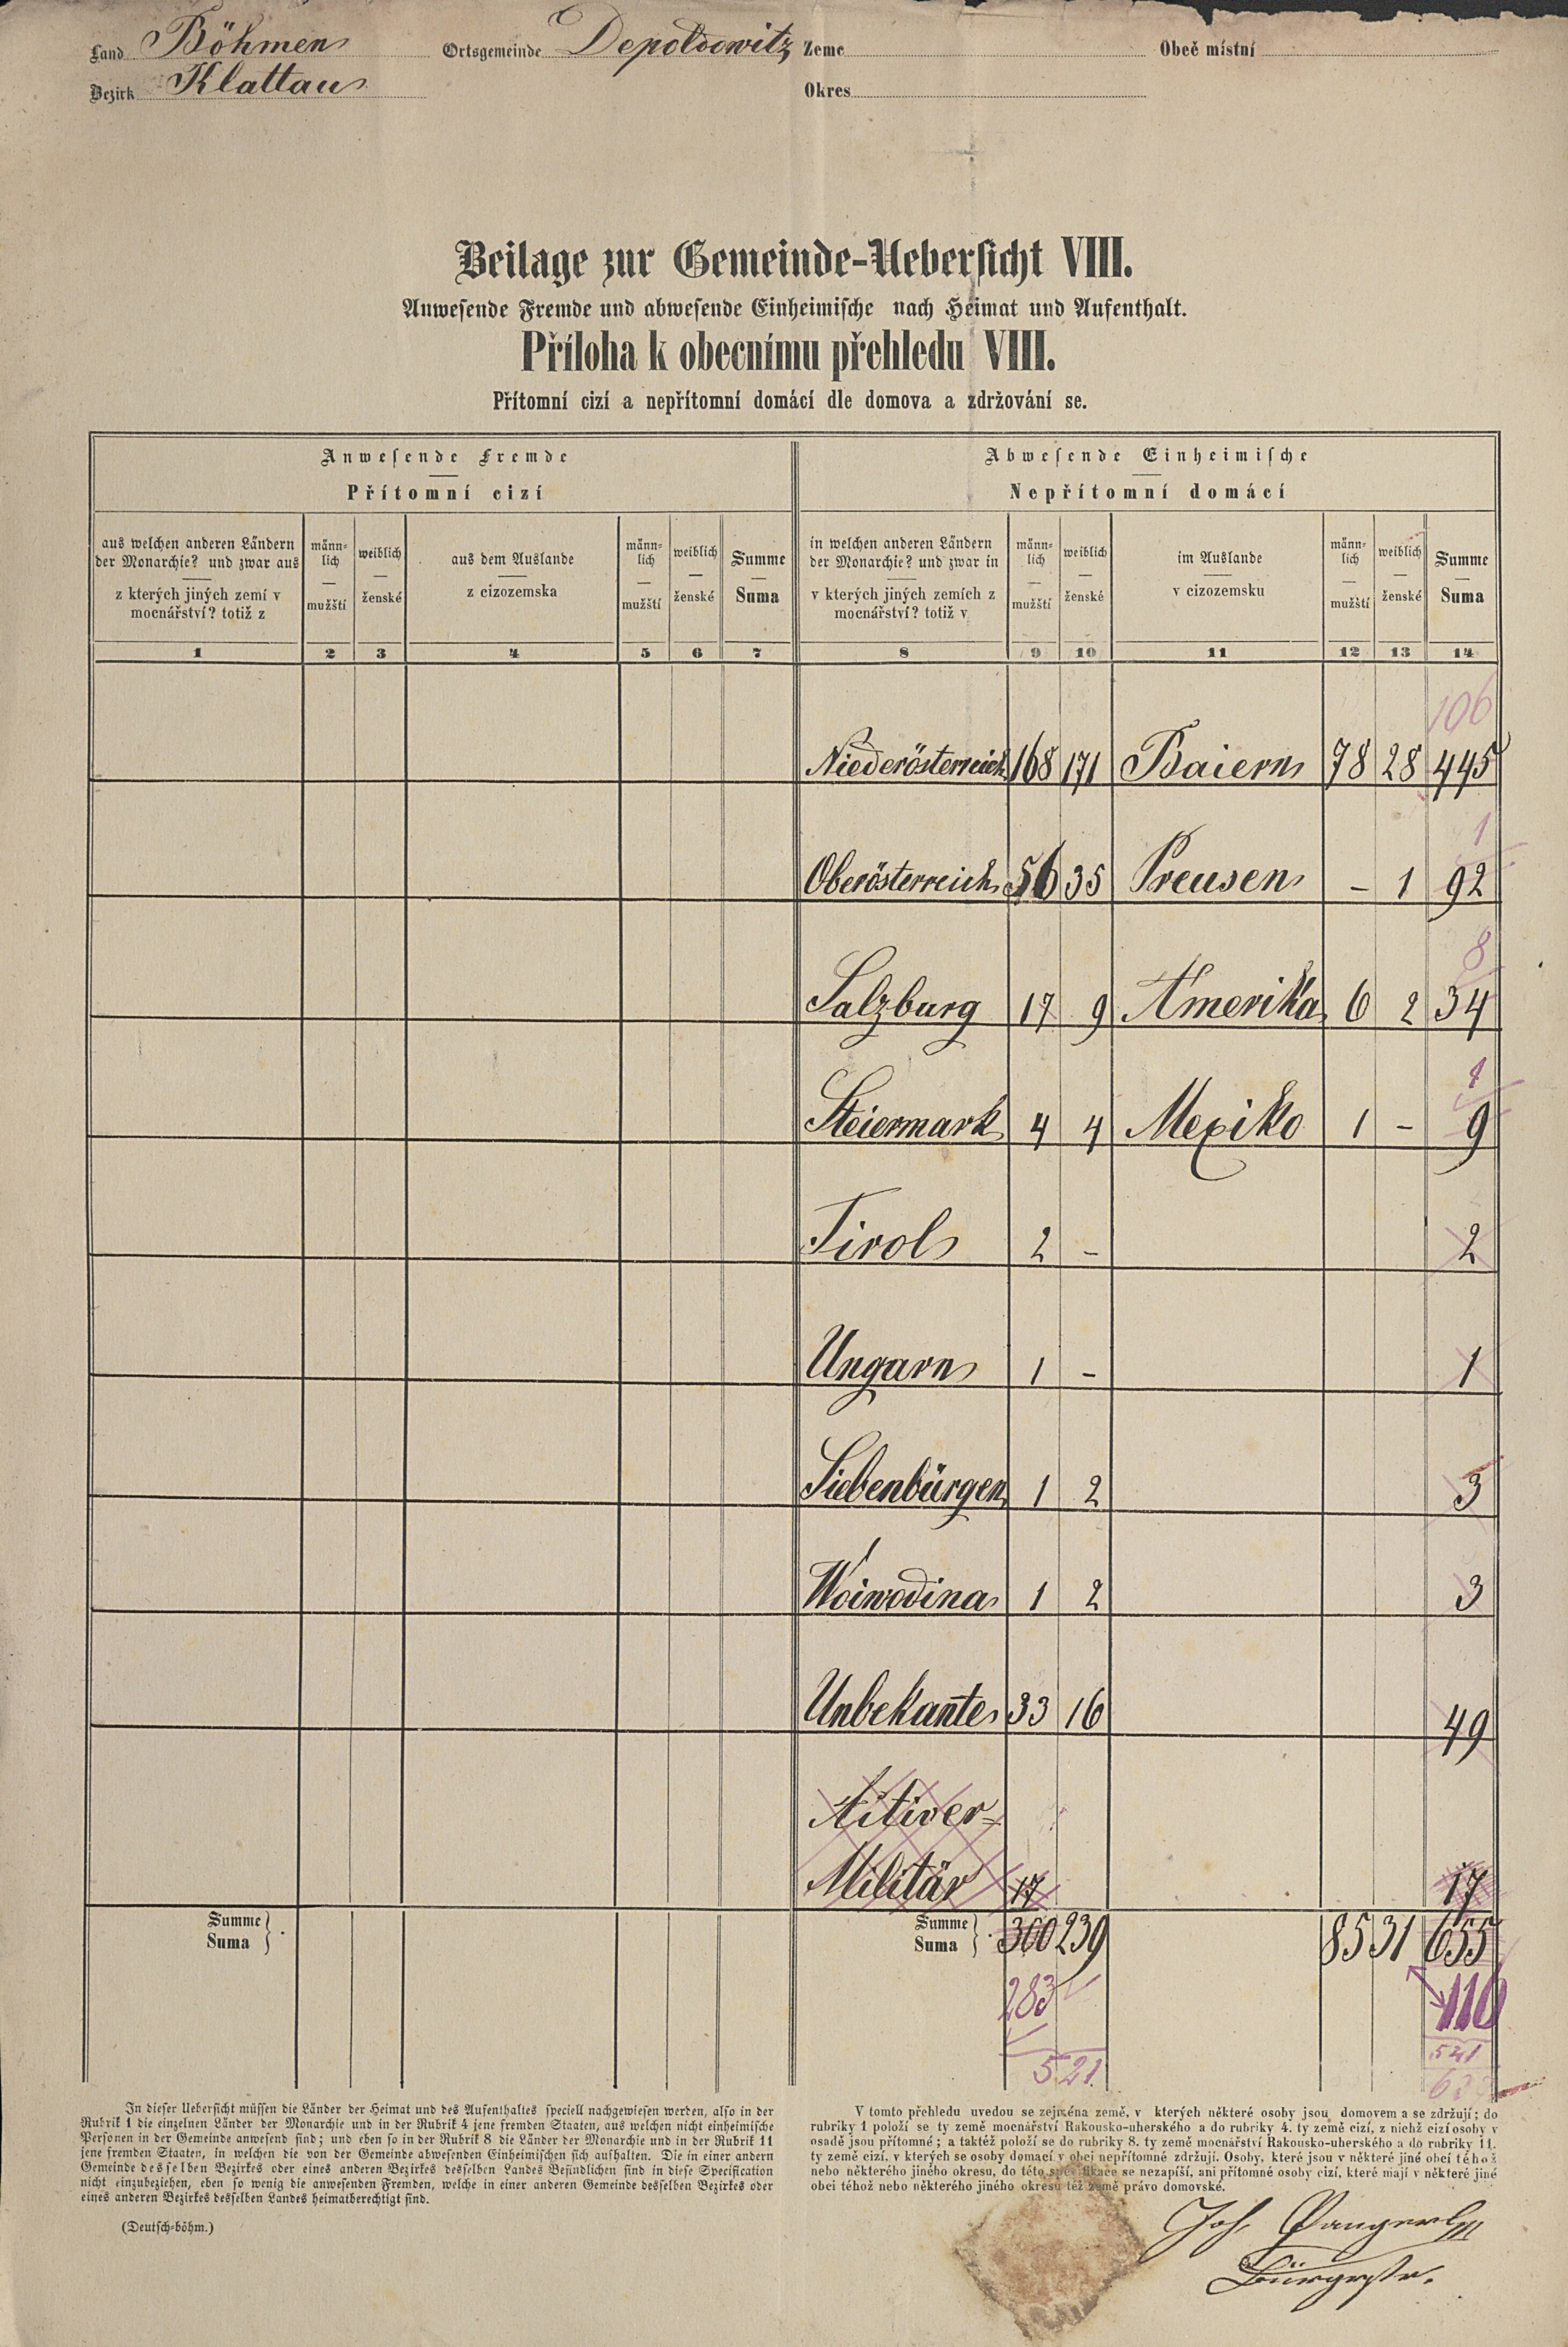 Land Böhmen Ortsgemeinde Depoldowitz Země Obec místní
Bezirk Klattau Okres
Beilage zur Gemeinde-Uebersicht VIII.
Anwesende Fremde und abwesende Einheimische nach Heimat und Aufenthalt.
Příloha k obecnímu přehledu VIII.
Přítomní cizí a nepřítomní domácí dle domova a zdržování se.
Anwesende Fremde
Přítomní cizí
Abwesende Einheimische
Nepřítomní domácí
aus welchen anderen Ländern der Monarchie? und zwar aus
z kterých jiných zemí v mocnářství? totiž z
männlich
mužští
weiblich
ženské
aus dem Auslande
z cizozemska
männlich
mužští
weiblich
ženské
Summe
Suma
in welchen anderen Ländern der Monarchie? und zwar in
v kterých jiných zemích z mocnářství? totiž v
männlich
mužští
weiblich
ženské
im Auslande
v cizozemsku
männlich
mužští
weiblich
ženské
Summe
Suma
1 2 3 4 5 6 7 8 9 10 11 12 13 14
106
Niederösterreich 168 171 Baiern 78 28 445
1
Oberösterreich 56 35 Preusen - 1 92
8
Salzburg 17 9 Amerika 6 2 34
1
Steiermark 4 4 Mexiko 1 - 9
Tirol 2 - 2
Ungarn 1 - 1
Siebenbürgen 1 2 3
Woiwodina 1 2 3
Unbekante 33 16 49
Aktiver=
Militär 17 17
Summe
Suma
Summe
Suma
300 239 85 31 655
283 116
521 521
In dieser Uebersicht müssen die Länder der Heimat und des Aufenthaltes speciell nachgewiesen werden, also in der
Rubrik 1 die einzelnen Länder der Monarchie und in der Rubrik 4 jene fremden Staaten, aus welchen nicht einheimische
Personen in der Gemeinde anwesend sind; und eben so in der Rubrik 8 die Länder der Monarchie und in der Rubrik 11
jene fremden Staaten, in welchen die von der Gemeinde abwesenden Einheimischen sich aufhalten. Die in einer andern
Gemeinde desselben Bezirkes oder eines anderen Bezirkes desselben Landes Befindlichen sind in diese Specification
nicht einzubeziehen, eben so wenig die anwesenden Fremden, welche in einer anderen Gemeinde desselben Bezirkes oder
eines anderen Bezirkes desselben Landes heimatberechtigt sind.
(Deutsch-böhm.)
V tomto přehledu uvedou se zejména země, v kterých některé osoby jsou domovem a se zdržují; do
rubriky 1 položí se ty země mocnářství Rakousko-uherského a do rubriky 4. ty země cizí, z nichž cizí osoby v
osadě jsou přítomné; a taktéž položí se do rubriky 8. ty země mocnářství Rakousko-uherského a do rubriky 11.
ty země cizí, v kterých se osoby domací v obci nepřítomné zdržují. Osoby, které jsou v některé jiné obci téhož
nebo některého jiného okresu, do této specifikace se nezapíší, ani přítomné osoby cizí, které mají v některé jiné
obci téhož nebo některého jiného okresu též země právo domovské.
Joh. Pangerl
Bürgrstr.